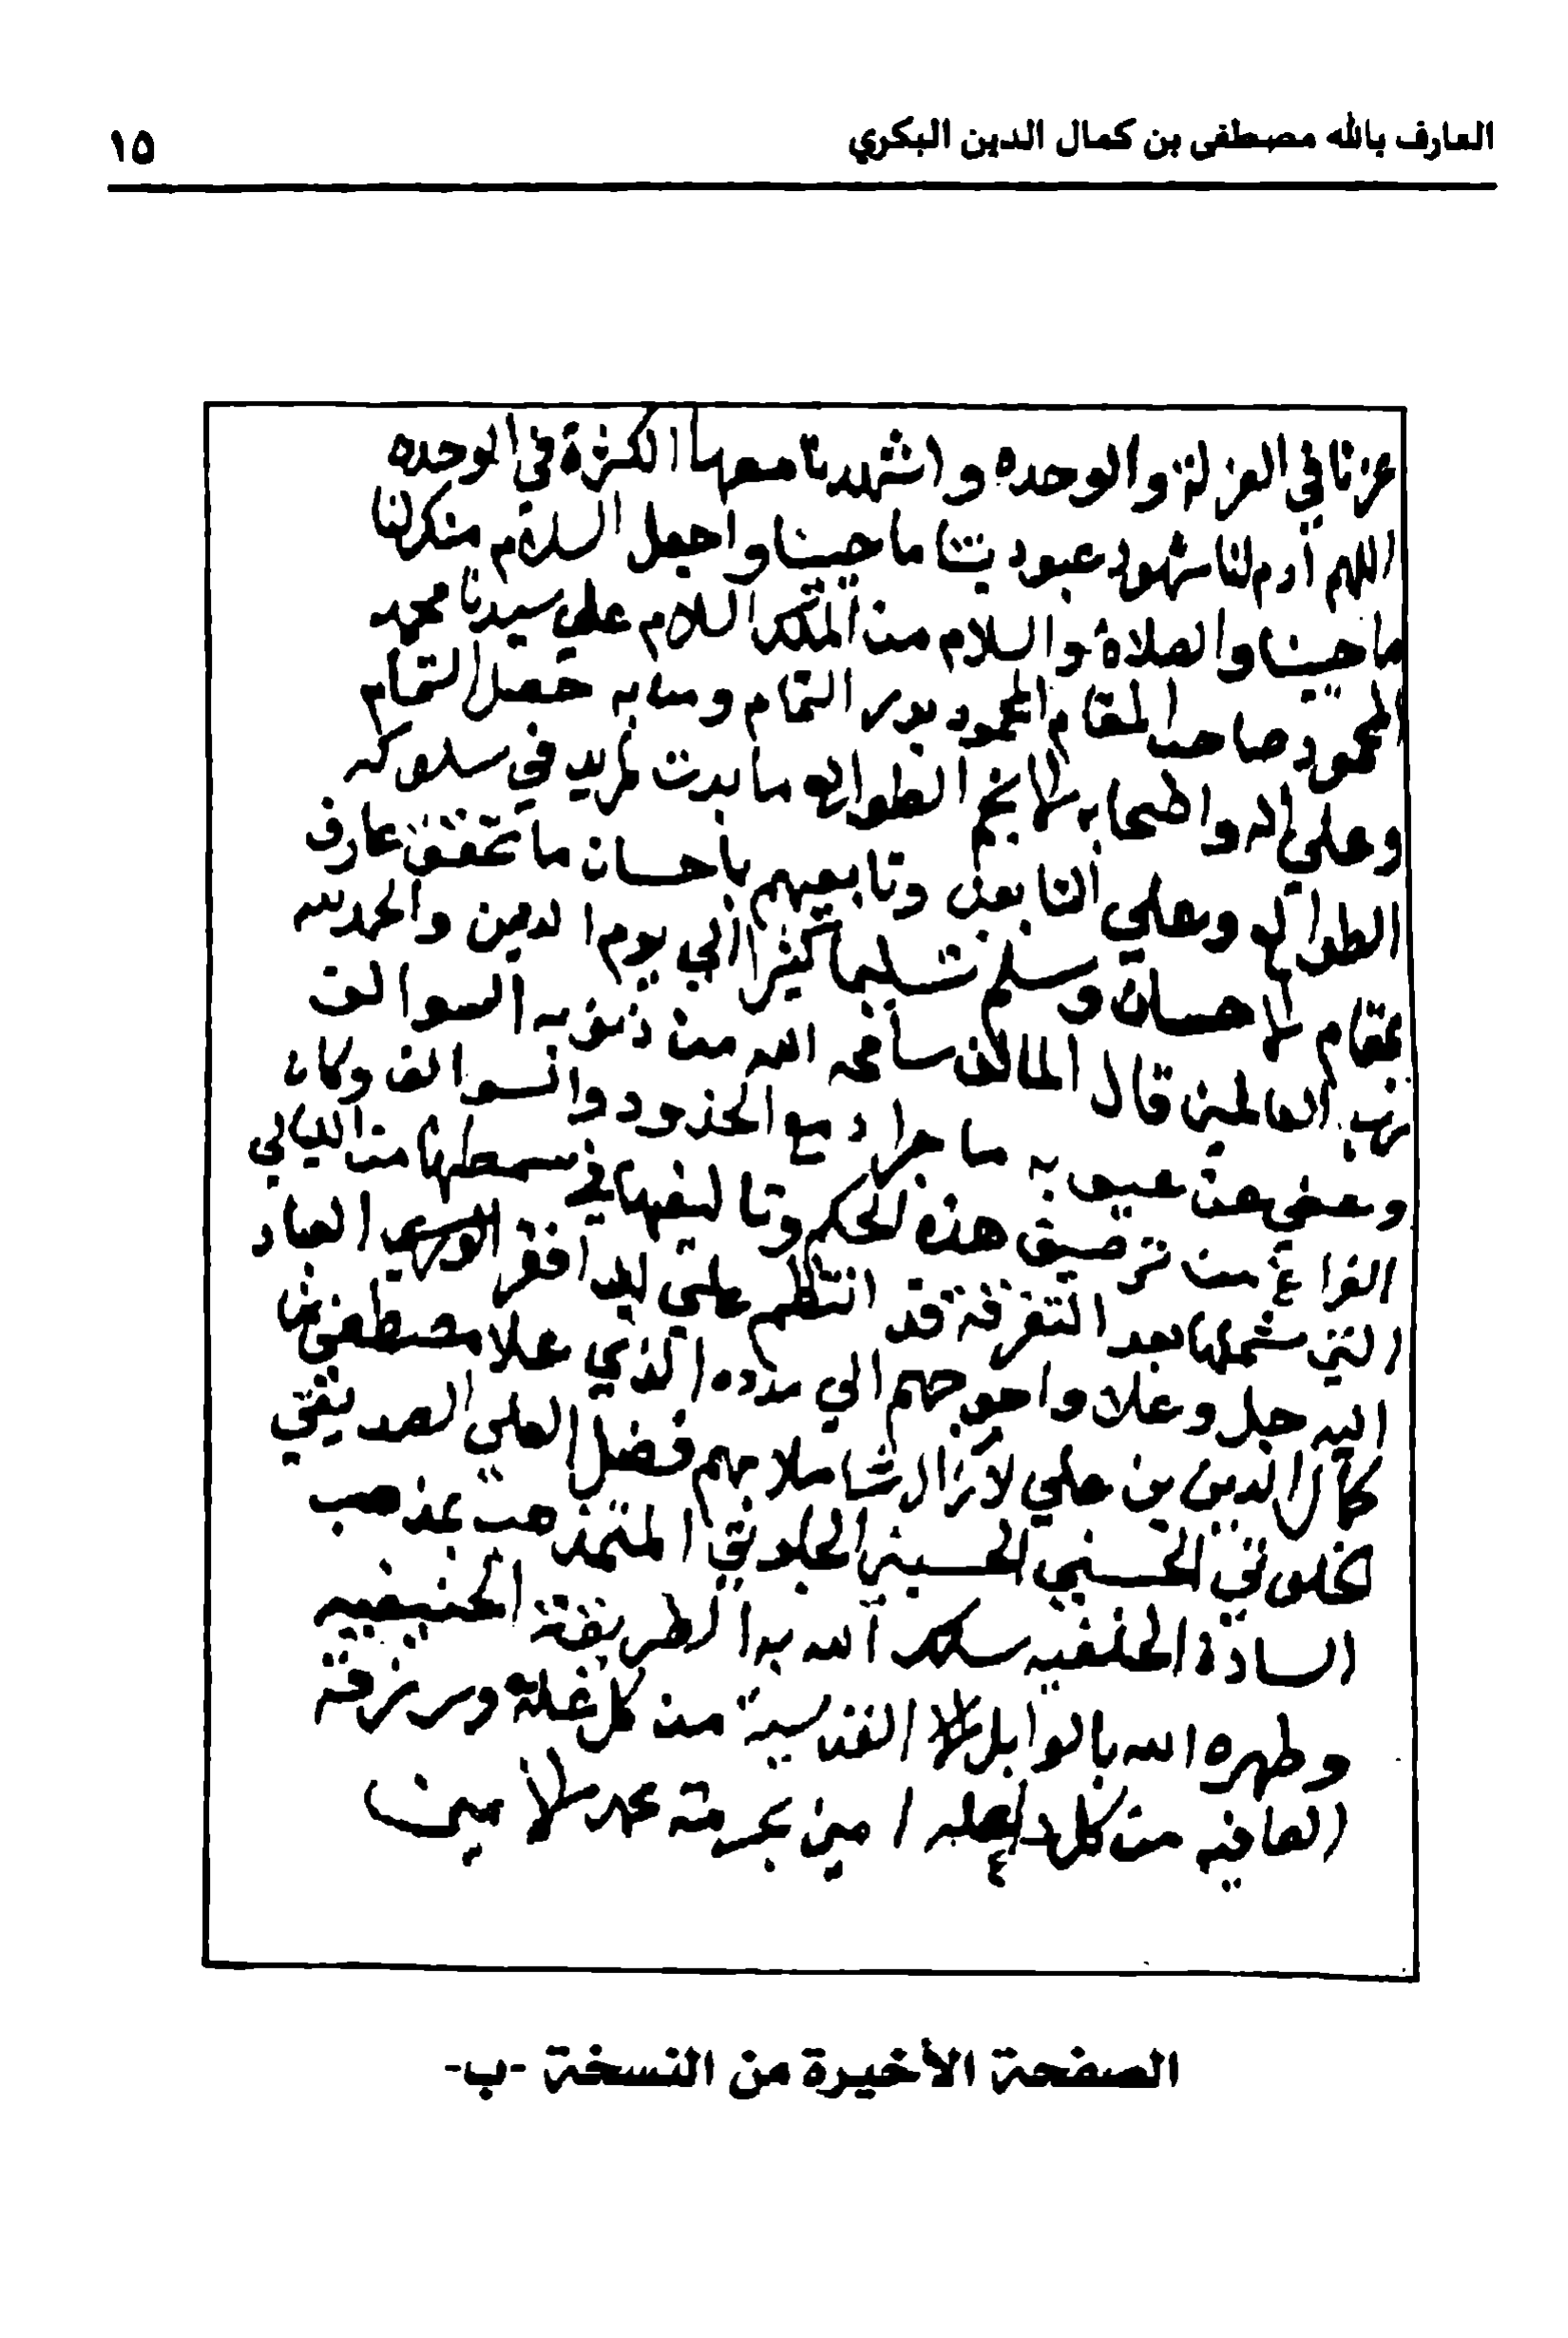 العارف بالله مصطفى بن كمال الدين البكري
١٥
عزنا في العزلة والوحده واشهدنا معها الكثرة في الوحده
اللهم أدم لنا شهود عبوديتنا ما حيينا واجعل السلام منك لنا
ما حيينا والصلاة والسلام منا لك السلام على سيدنا محمد
المحمود صاحب المقام المحمود بدر التمام ومن به حصل التمام
وعلى اله واصحابه الانجم الطوالع ما بدت لمريد في سلوكه
الطوالع وعلى التابعين وتابعيهم باحسان ما تحقق عارف
بمقام الاحسان وسلم تسليما كثيرا الي يوم الدين والحمد لله
رب العالمين قال المؤلف سامحه الله من ذنوبه السوالف
وعفي عن عيوبه ما جرا دمع الخدود والسوالف وكان
الفراغ من ترصيف هذه الحكم وتاليفها في سمطها من الليالي
التي شملها بعد التفرقة قد انتظم على يد أفقر الورى العباد
اليه جل وعلا واحوجهم الي مدده الذي علا مصطفى بن
كمال الدين بن علي لا زال شاملا بهم فضل العلي الصديقي
الخلوتي الحسني الحسيني الخلوتي المتمذهب بمذهب
السادة الحنفيه سلك الله به الطريقة الحنيفيه
وطهره الله بالوابل القدسية من كل غلة ورزقه
العافيه من كل د علة امين بحرمة محمد الامين
الصفحة الأخيرة من النسخة -ب-